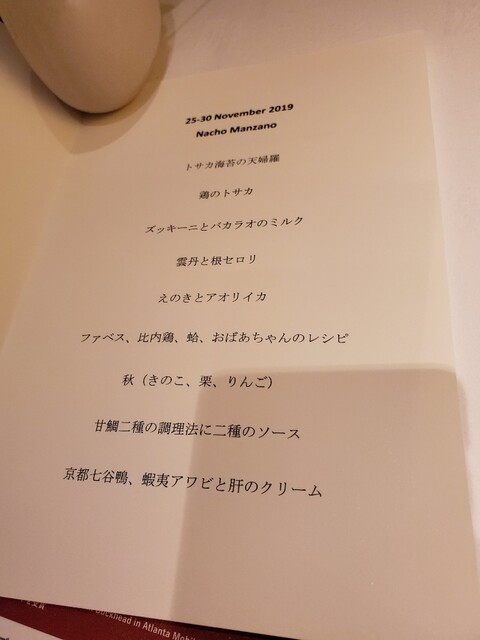 25-30 November 2019
Nacho Manzano
トサカ海苔の天婦羅
鶏のトサカ
ズッキーニとバカラオのミルク
雲丹と根セロリ
えのきとアオリイカ
ファベス、比内鶏、蛤、おばあちゃんのレシピ
秋（きのこ、栗、りんご）
甘鯛二種の調理法に二種のソース
京都七谷鴨、蝦夷アワビと肝のクリーム
Buckhead in Atlanta Mobil